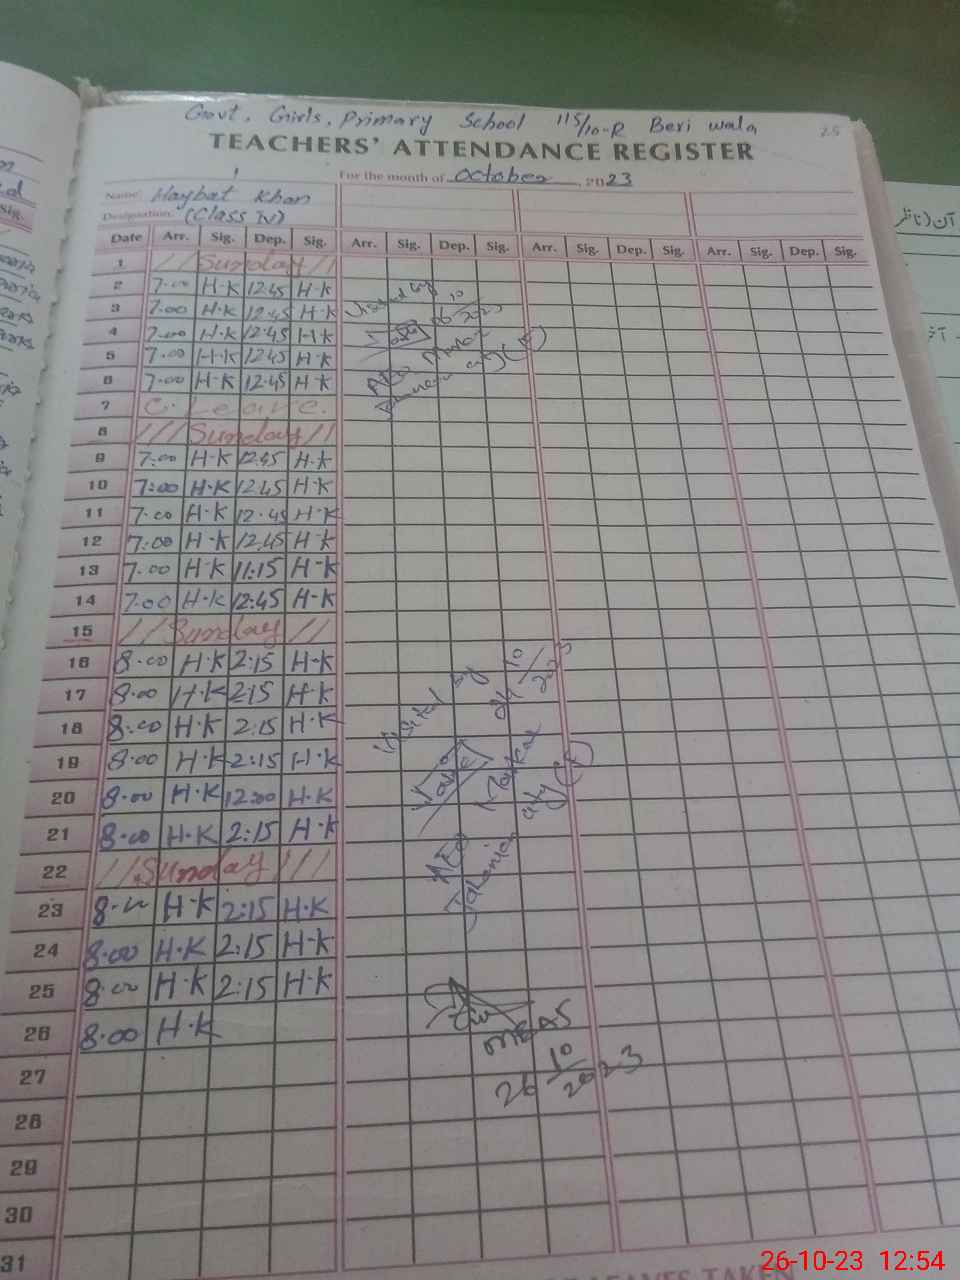 Govt. Girls. Primary School 115/10-R Beri wala
25
TEACHERS' ATTENDANCE REGISTER
For the month of October, 2023
Name: Haybat Khan
Designation: (Class IV)
Date Arr. Sig. Dep. Sig. Arr. Sig. Dep. Sig. Arr. Sig. Dep. Sig. Arr. Sig. Dep. Sig.
1 // Sunday //
2 7.00 H-K 12.45 H-K
3 7.00 H-K 12.45 H-K
4 7.00 H-K 12.45 H-K
5 7.00 H-K 12.45 H-K
6 7.00 H-K 12.45 H-K
7 C. Leave.
8 /// Sunday //
9 7:00 H-K 12.45 H-K
10 7:00 H-K 12.45 H-K
11 7.00 H-K 12.45 H-K
12 7:00 H-K 12.45 H-K
13 7.00 H-K 11:15 H-K
14 7.00 H-K 12:45 H-K
15 // Sunday //
16 8.00 H-K 2:15 H-K
17 8.00 H-K 2:15 H-K
18 8.00 H-K 2:15 H-K
19 8.00 H-K 2:15 H-K
20 8.00 H-K 12:00 H-K
21 8.00 H-K 2:15 H-K
22 // Sunday ///
23 8.00 H-K 2:15 H-K
24 8.00 H-K 2:15 H-K
25 8.00 H-K 2:15 H-K
26 8.00 H-K
27
28
29
30
31
Visited by
06/10/2023
AEO Markaz
city (F)
Visited by
04/10/2023
AEO Markaz
Jahanian city (F)
MEAS
26/10/2023
LEAVES TAKEN
26-10-23 12:54